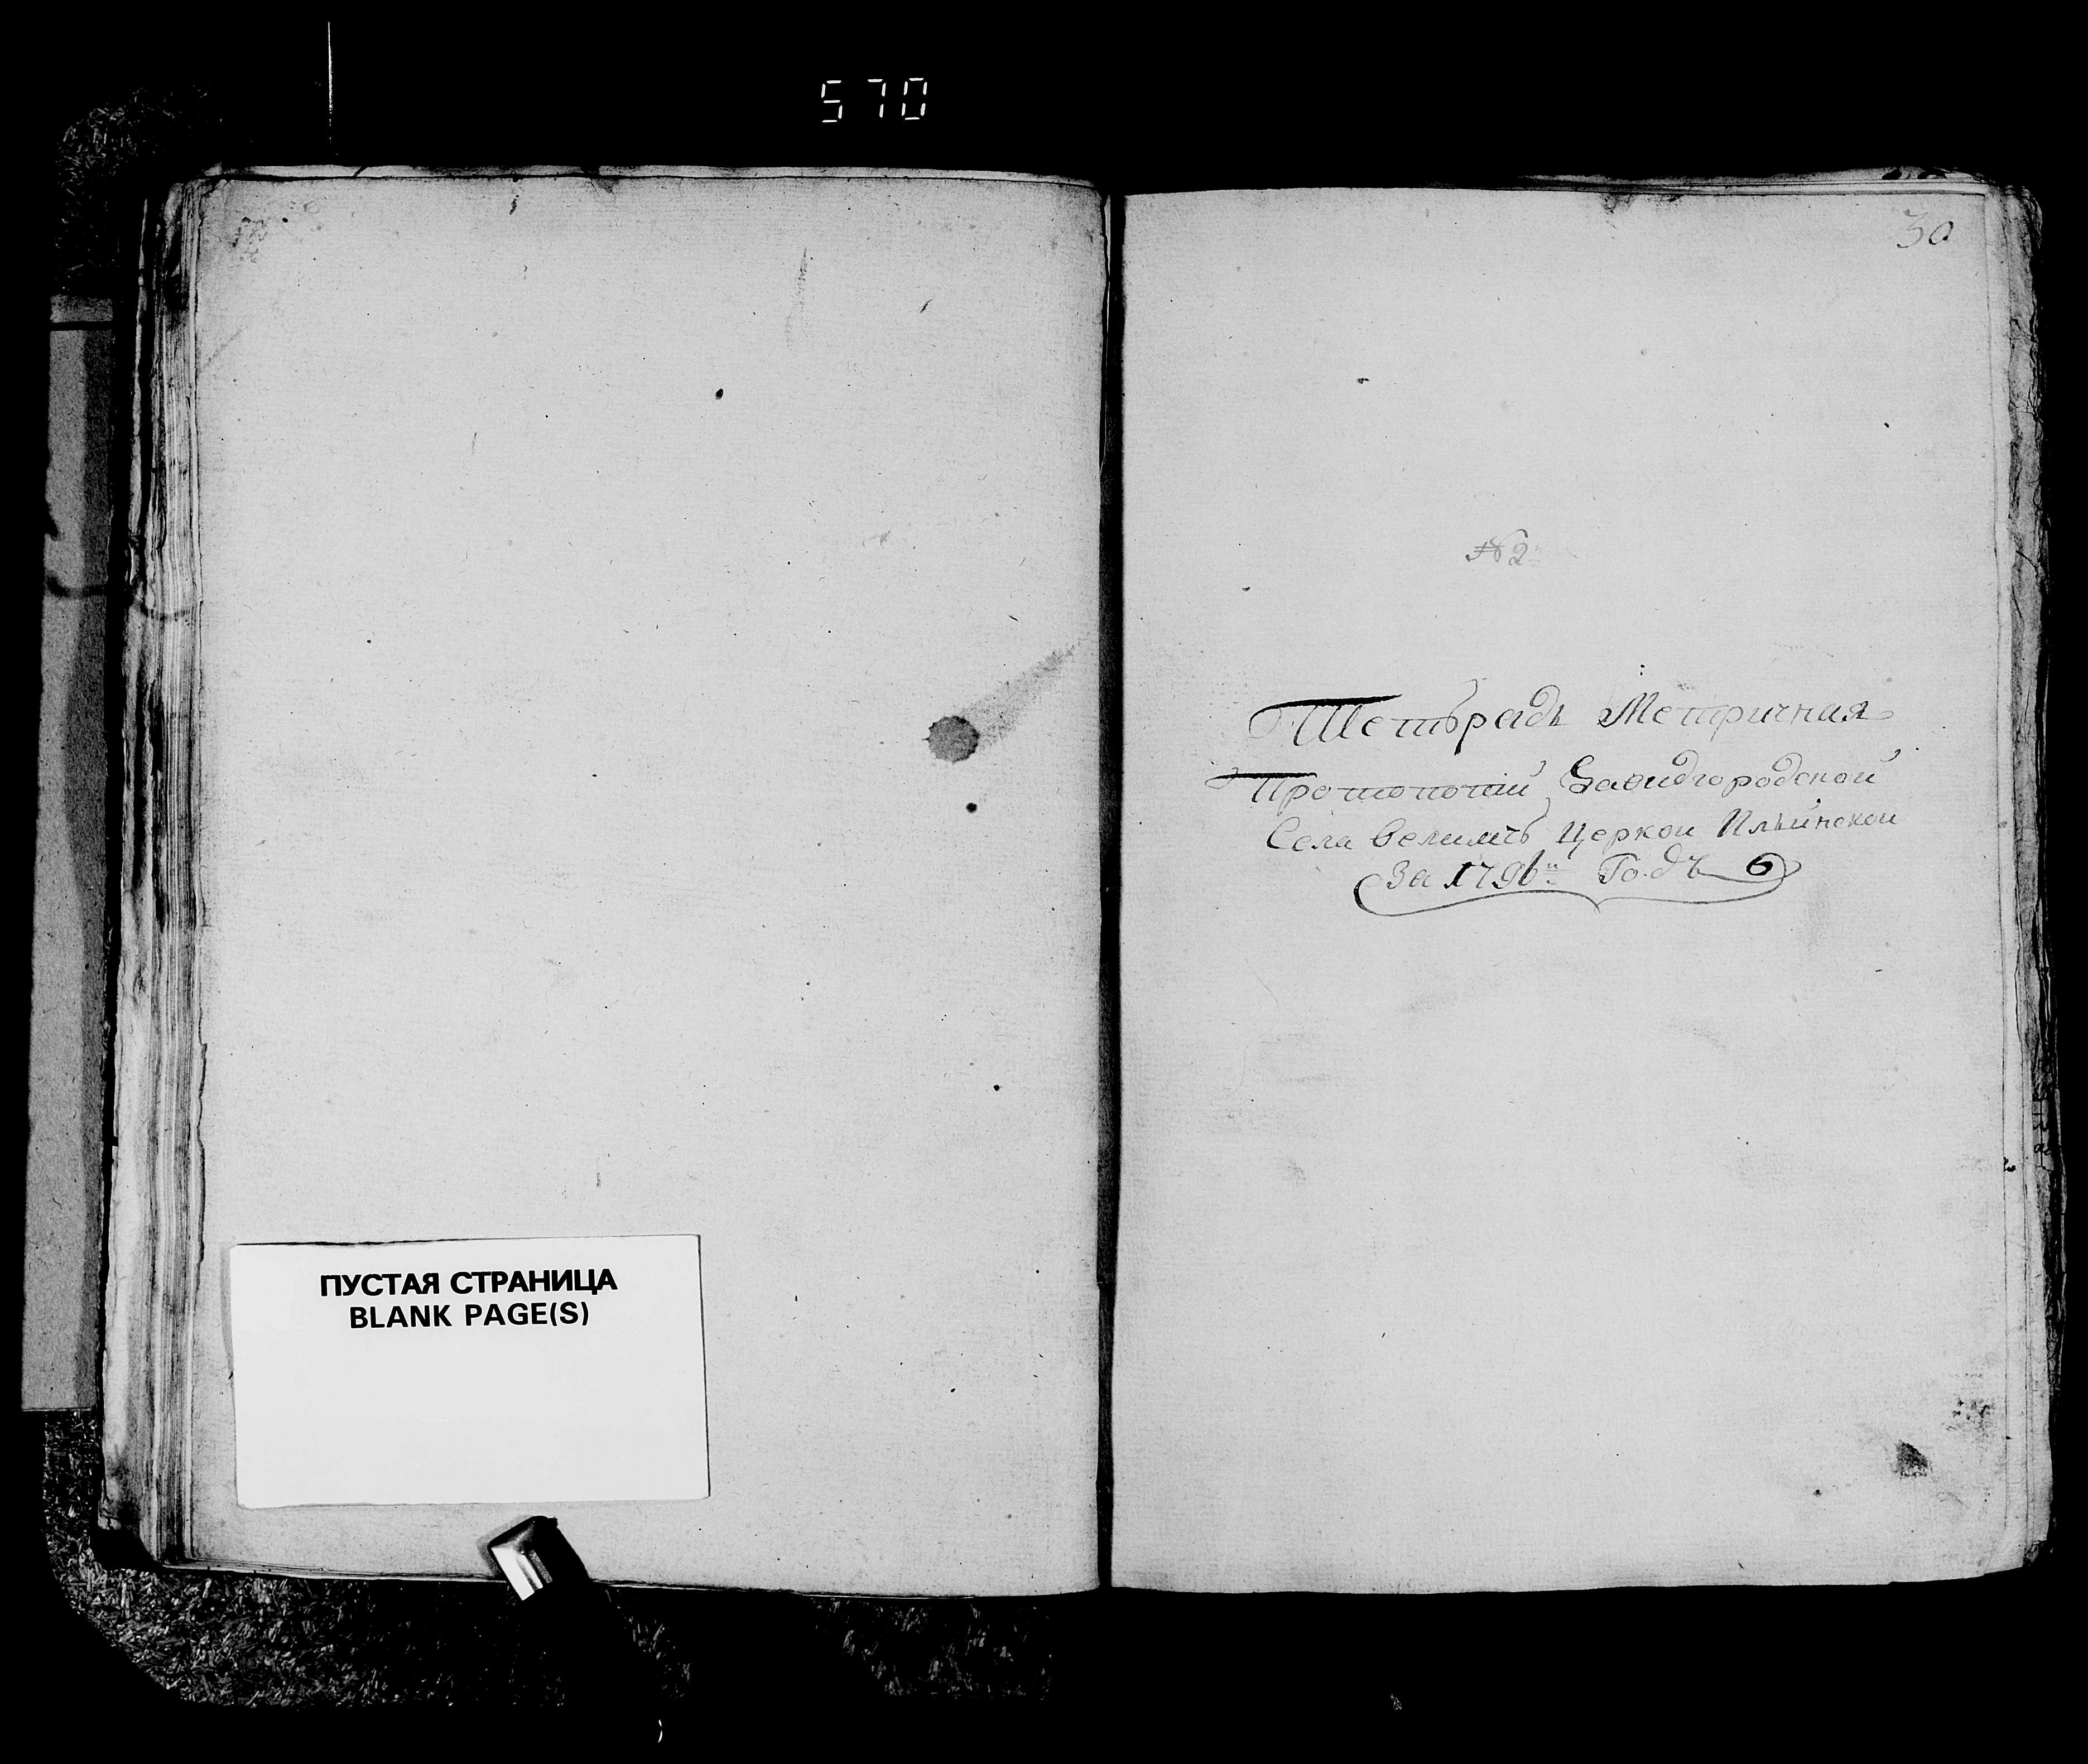 570
ПУСТАЯ СТРАНИЦА
BLANK PAGE(S)
30
№ 2
Тетърадь Метричная
Протопопии Завидгородской
Села Велимъ Церкви Ильинской
За 1796 Годъ